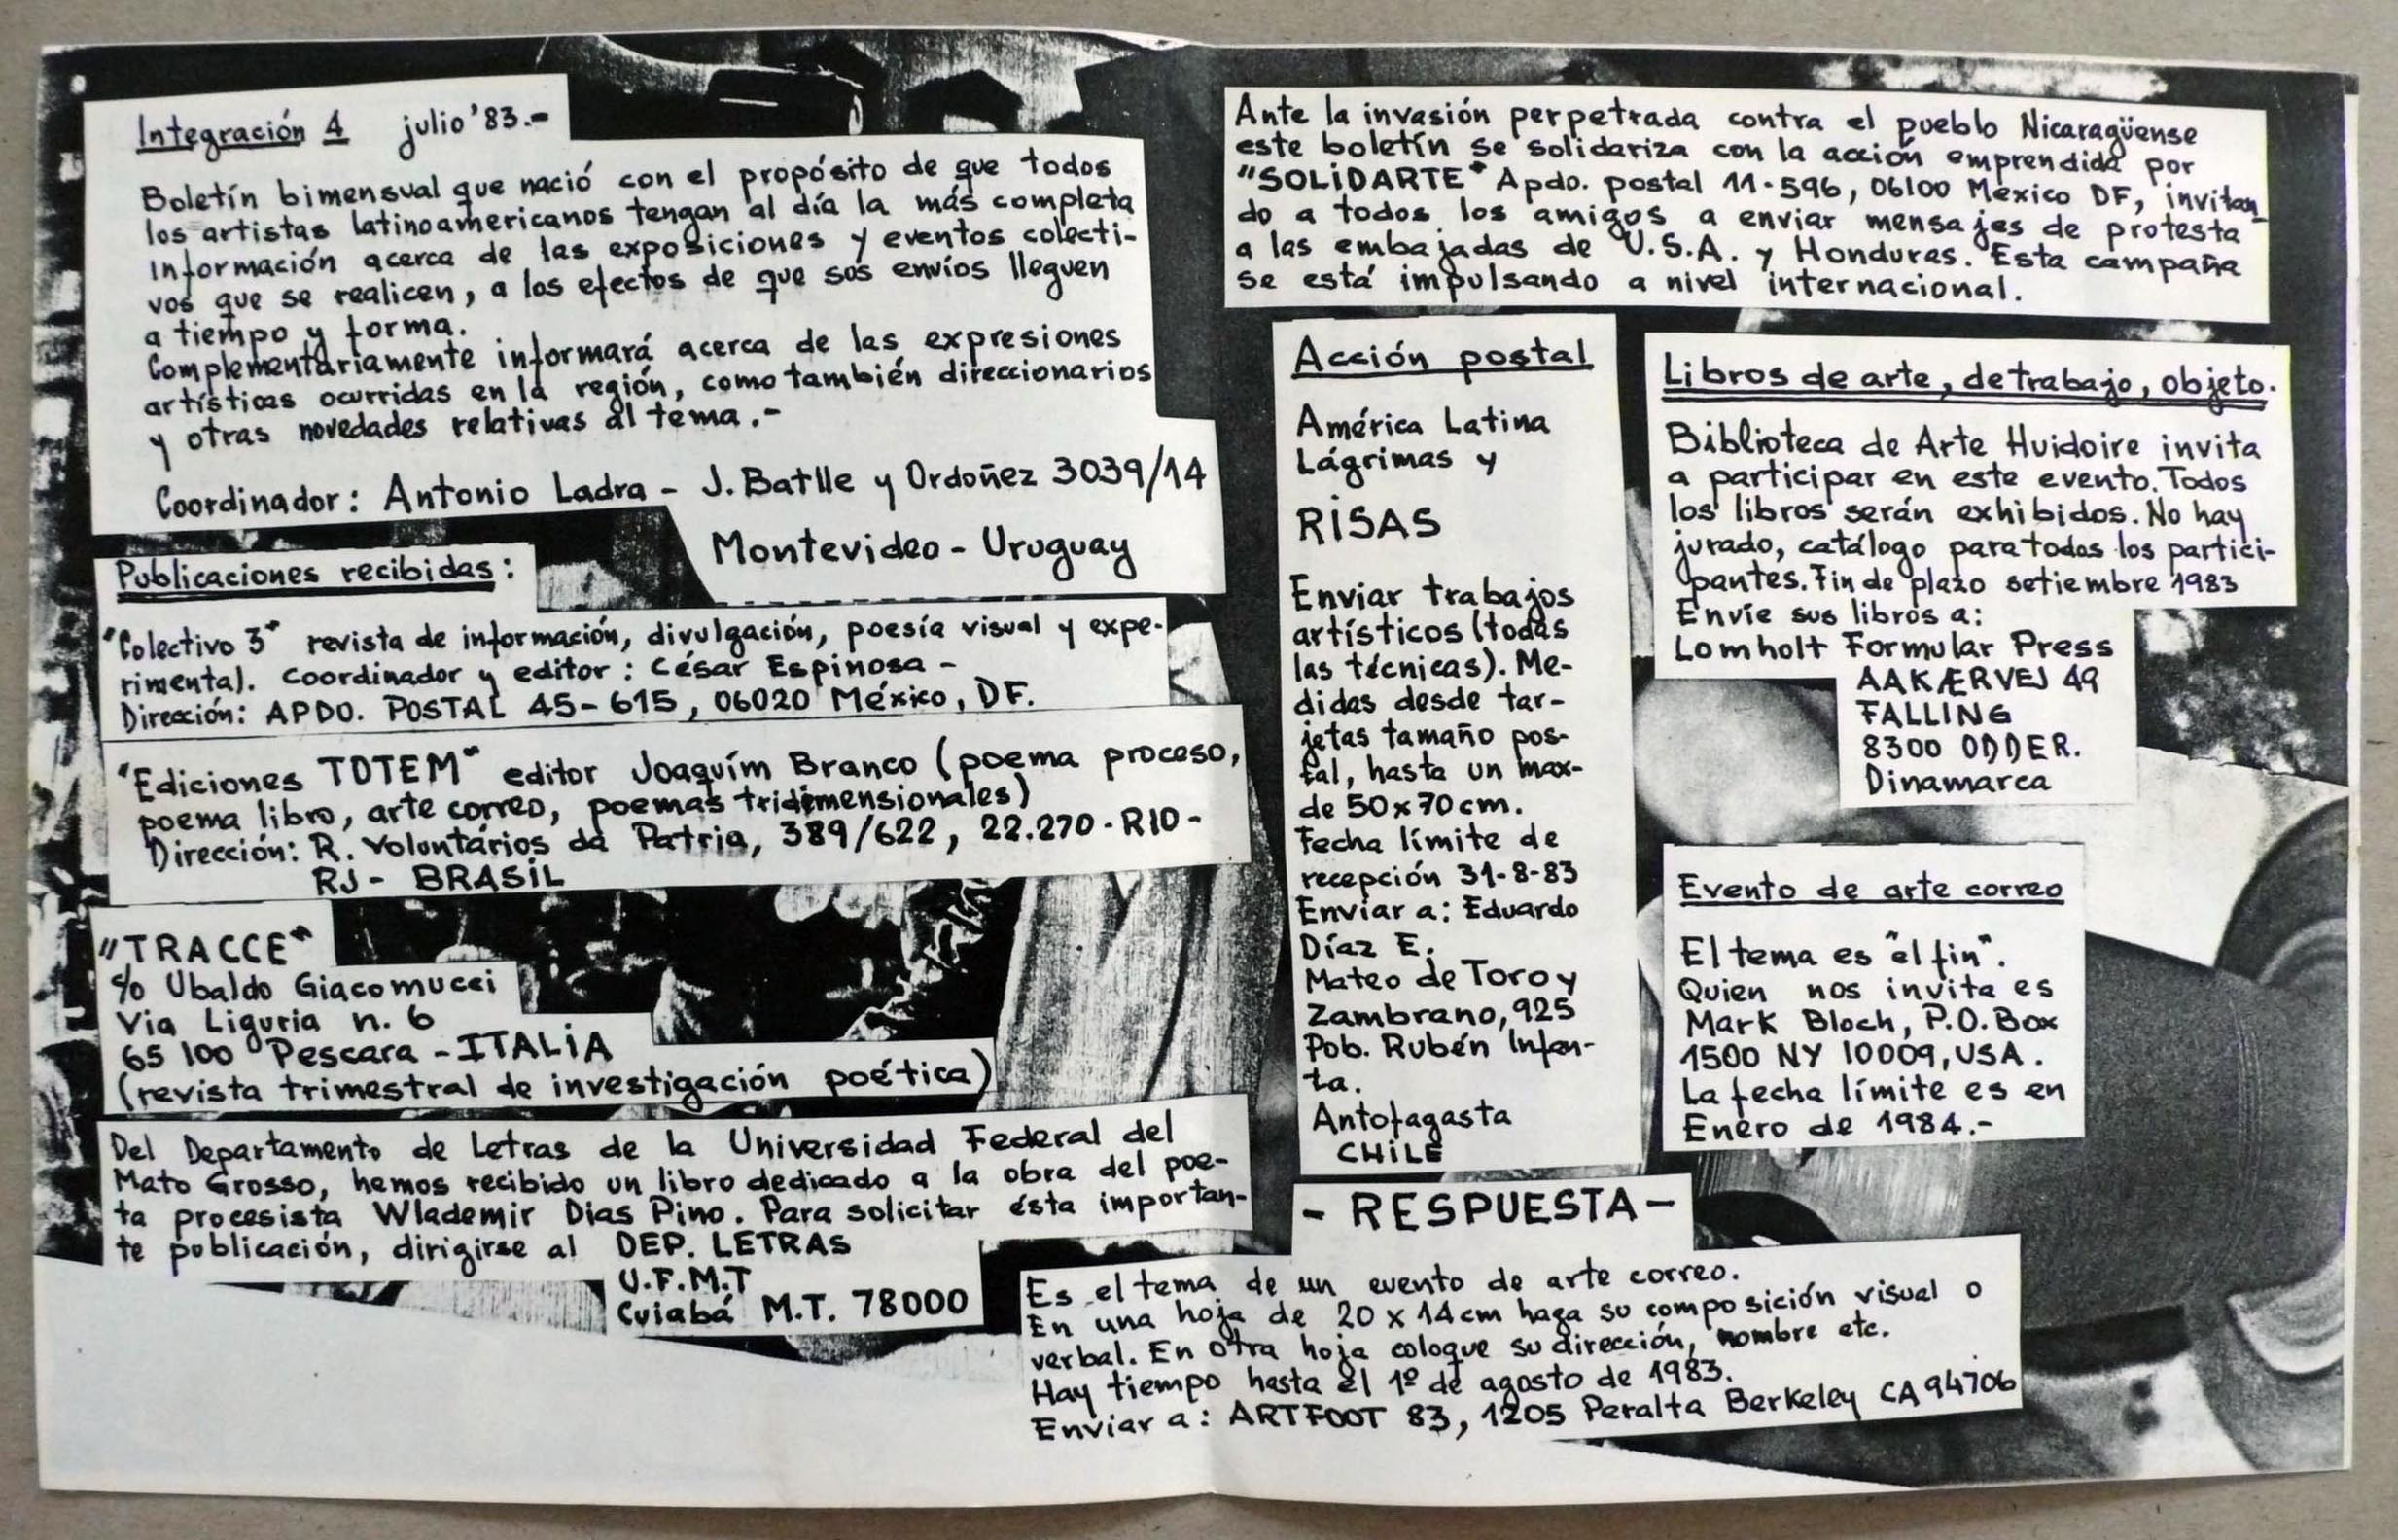 Integración 4 julio '83.-
Boletín bimensual que nació con el propósito de que todos
los artistas latinoamericanos tengan al día la más completa
información acerca de las exposiciones y eventos colecti-
vos que se realicen, a los efectos de que sus envíos lleguen
a tiempo y forma.
Complementariamente informará acerca de las expresiones
artísticas ocurridas en la región, como también direccionarios
y otras novedades relativas al tema.-
Coordinador: Antonio Ladra - J. Batlle y Ordoñez 3039/14
Montevideo - Uruguay
Publicaciones recibidas:
"Colectivo 3" revista de información, divulgación, poesía visual y expe-
rimental. Coordinador y editor: César Espinosa -
Dirección: APDO. POSTAL 45-615, 06020 México, DF.
"Ediciones TOTEM" editor Joaquím Branco (poema proceso,
poema libro, arte correo, poemas tridimensionales)
Dirección: R. Voluntários da Patria, 389/622, 22.270-RIO-
RJ- BRASIL
"TRACCE"
c/o Ubaldo Giacomucci
Via Liguria n. 6
65 100 Pescara - ITALIA
(revista trimestral de investigación poética)
Del Departamento de Letras de la Universidad Federal del
Mato Grosso, hemos recibido un libro dedicado a la obra del poe-
ta procesista Wlademir Dias Pino. Para solicitar ésta importan-
te publicación, dirigirse al DEP. LETRAS
U.F.M.T
Cuiabá M.T. 78000
Ante la invasión perpetrada contra el pueblo Nicaragüense
este boletín se solidariza con la acción emprendida por
"SOLIDARTE" Apdo. postal 11-596, 06100 México DF, invitan_
do a todos los amigos a enviar mensajes de protesta
a las embajadas de U.S.A. y Honduras. Esta campaña
se está impulsando a nivel internacional.
Acción postal
América Latina
Lágrimas y
RISAS
Enviar trabajos
artísticos (todas
las técnicas). Me-
didas desde tar-
jetas tamaño pos-
tal, hasta un max-
de 50x70cm.
Fecha límite de
recepción 31-8-83
Enviar a: Eduardo
Díaz E.
Mateo de Toro y
Zambrano, 925
Pob. Rubén Infan-
ta.
Antofagasta
CHILE
Libros de arte, de trabajo, objeto.
Biblioteca de Arte Huidoire invita
a participar en este evento. Todos
los libros serán exhibidos. No hay
jurado, catálogo para todos los partici-
pantes. Fin de plazo setiembre 1983
Envíe sus libros a:
Lomholt Formular Press
AAKÆRVEJ 49
FALLING
8300 ODDER.
Dinamarca
Evento de arte correo
El tema es "el fin".
Quien nos invita es
Mark Bloch, P.O. Box
1500 NY 10009, USA.
La fecha límite es en
Enero de 1984.-
- RESPUESTA -
Es el tema de un evento de arte correo.
En una hoja de 20 x 14 cm haga su composición visual o
verbal. En otra hoja coloque su dirección, nombre etc.
Hay tiempo hasta el 1º de agosto de 1983.
Enviar a: ARTFOOT 83, 1205 Peralta Berkeley CA 94706